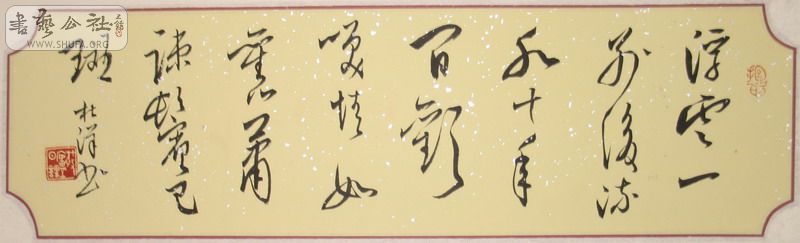 書藝公社
WWW.SHUFA.ORG
浮雲一
别後流
水十年
间歡
笑情如
舊蕭
疎鬢已
斑
杜洋书